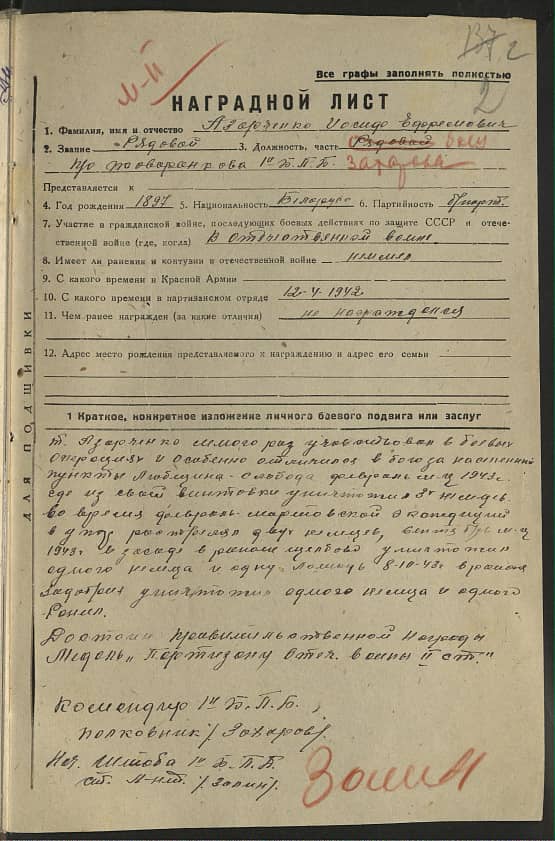 137 г
2
М-й
Все графы заполнять полностью
НАГРАДНОЙ ЛИСТ
1. Фамилия, имя и отчество Азарченко Иосиф Ефремович
2. Звание Рядовой 3. Должность, часть Рядовой
1й Б.П.Б. Захарова
Представляется к
4. Год рождения 1897 5. Национальность Белорусс 6. Партийность б/парт.
7. Участие в гражданской войне, последующих боевых действиях по защите СССР и отече-
ственной войне (где, когда) В отечественной войне
8. Имеет ли ранения и контузии в отечественной войне не имеет
9. С какого времени в Красной Армии
10. С какого времени в партизанском отряде 12-4-1942
11. Чем ранее награжден (за какие отличия) не награжден
12. Адрес место рождения представляемого к награждению и адрес его семьи
ДЛЯ ПОДШИВКИ
1 Краткое, конкретное изложение личного боевого подвига или заслуг
т. Азарченко много раз участвовал в боевых
операциях и особенно отличился в боях за населенный
пункты Слобода февраль м-ц 1943г
где из своей винтовки уничтожил 3х немцев.
во время февраль-мартовской экспедиции
расстрелял двух немцев, м-ц
1943г в засаде в районе уничтожил
одного немца и одну 8-10-43г в районе
уничтожил одного немца и одного
Ранил.
Достоин правительственной награды
Медаль „Партизану Отеч. войны II ст."
Командир 1й Б.П.Б.,
полковник /Захаров/.
Нач. Штаба 1й Б.П.Б.
ст. л-нт. /Залин/.